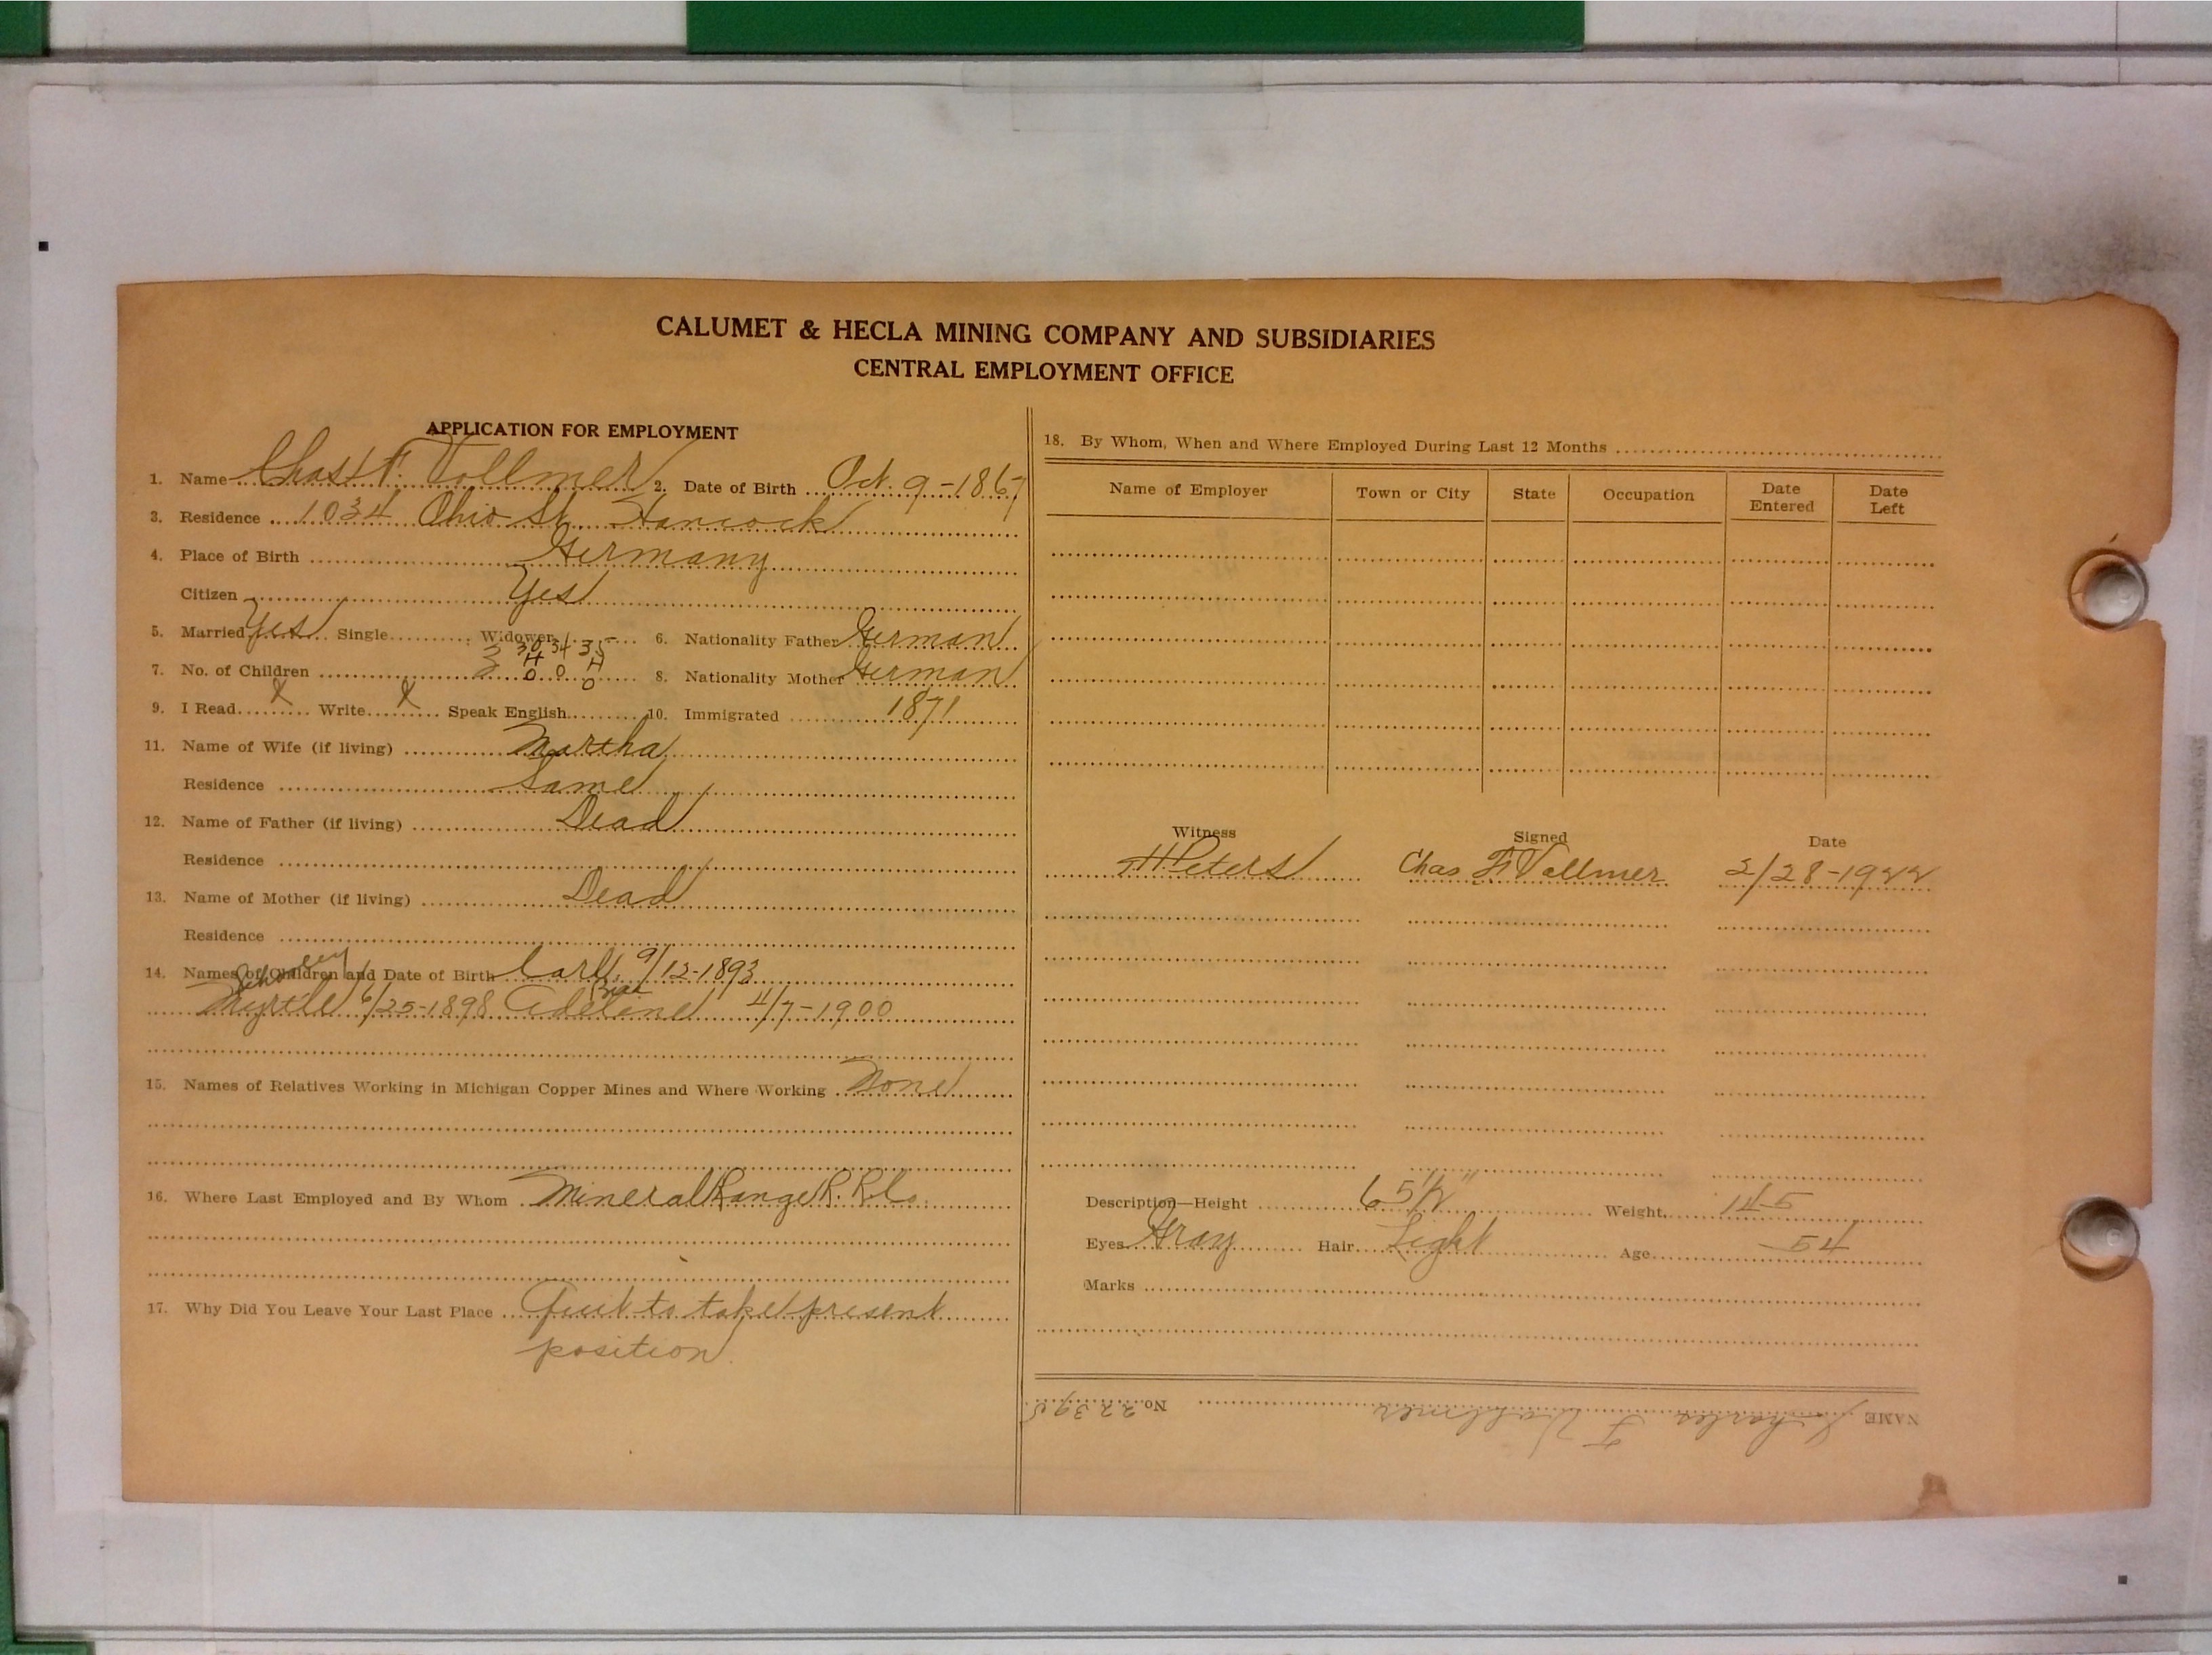 CALUMET & HECLA MINING COMPANY AND SUBSIDIARIES
CENTRAL EMPLOYMENT OFFICE
APPLICATION FOR EMPLOYMENT
1. Name Chas F. Vollmer 2. Date of Birth Oct. 9-1867
3. Residence 1034 Ohio St. Hancock
4. Place of Birth Germany
Citizen Yes
5. Married Yes Single Widower 6. Nationality Father German
30 34 35
7. No. of Children 3 8. Nationality Mother German
H H
0 0 0
9. I Read X Write X Speak English 10. Immigrated 1871
11. Name of Wife (if living) Martha
Residence Same
12. Name of Father (if living) Dead
Residence
13. Name of Mother (if living) Dead
Residence
14. Names of Children and Date of Birth Carl 9/12-1893
Myrtle 6/25-1898 Adeline 4/7-1900
15. Names of Relatives Working in Michigan Copper Mines and Where Working None
16. Where Last Employed and By Whom Mineral Range R. R. Co.
17. Why Did You Leave Your Last Place Quit to take present
position
18. By Whom, When and Where Employed During Last 12 Months
Name of Employer Town or City State Occupation Date Entered Date Left
Witness Signed Date
H Peters Chas F. Vollmer 2/28-1922
Description—Height 65½" Weight 145
Eyes Gray Hair Light Age 54
Marks
NAME Charles F Vollmer No. 22395